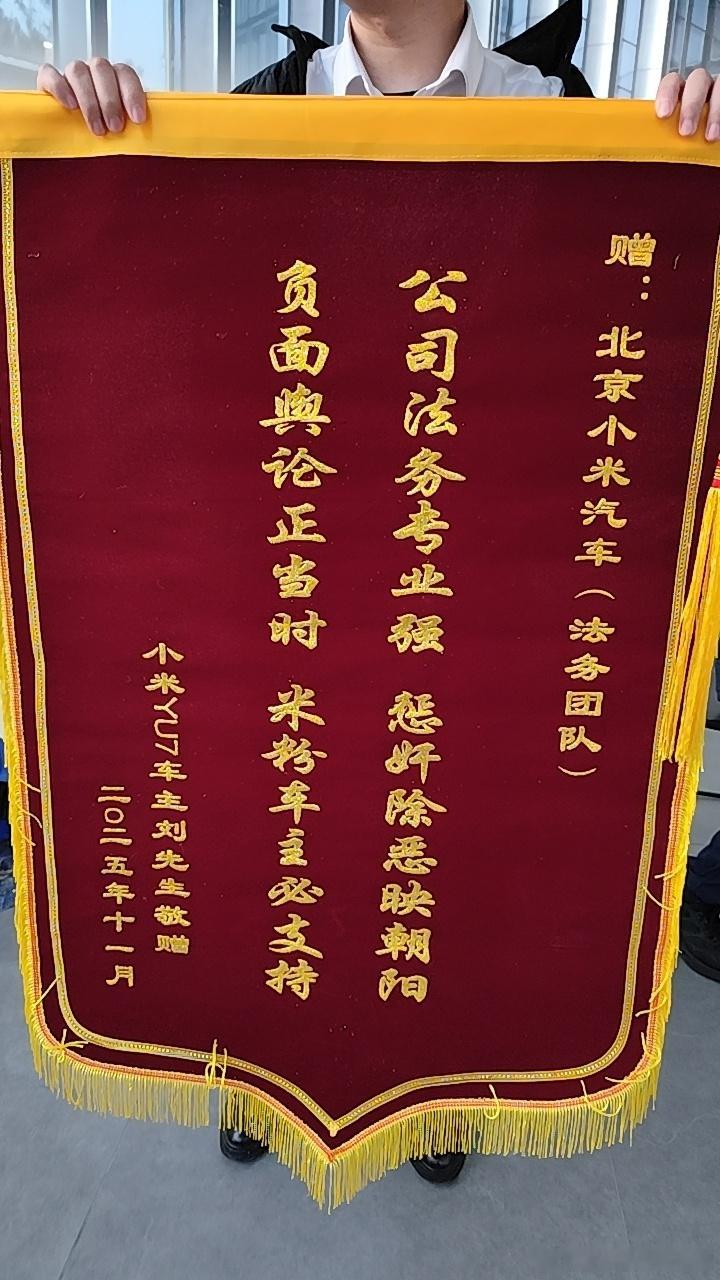 赠：北京小米汽车（法务团队）
公司法务专业强 惩奸除恶映朝阳
负面舆论正当时 米粉车主必支持
小米YU7车主刘先生敬赠
二〇二五年十一月